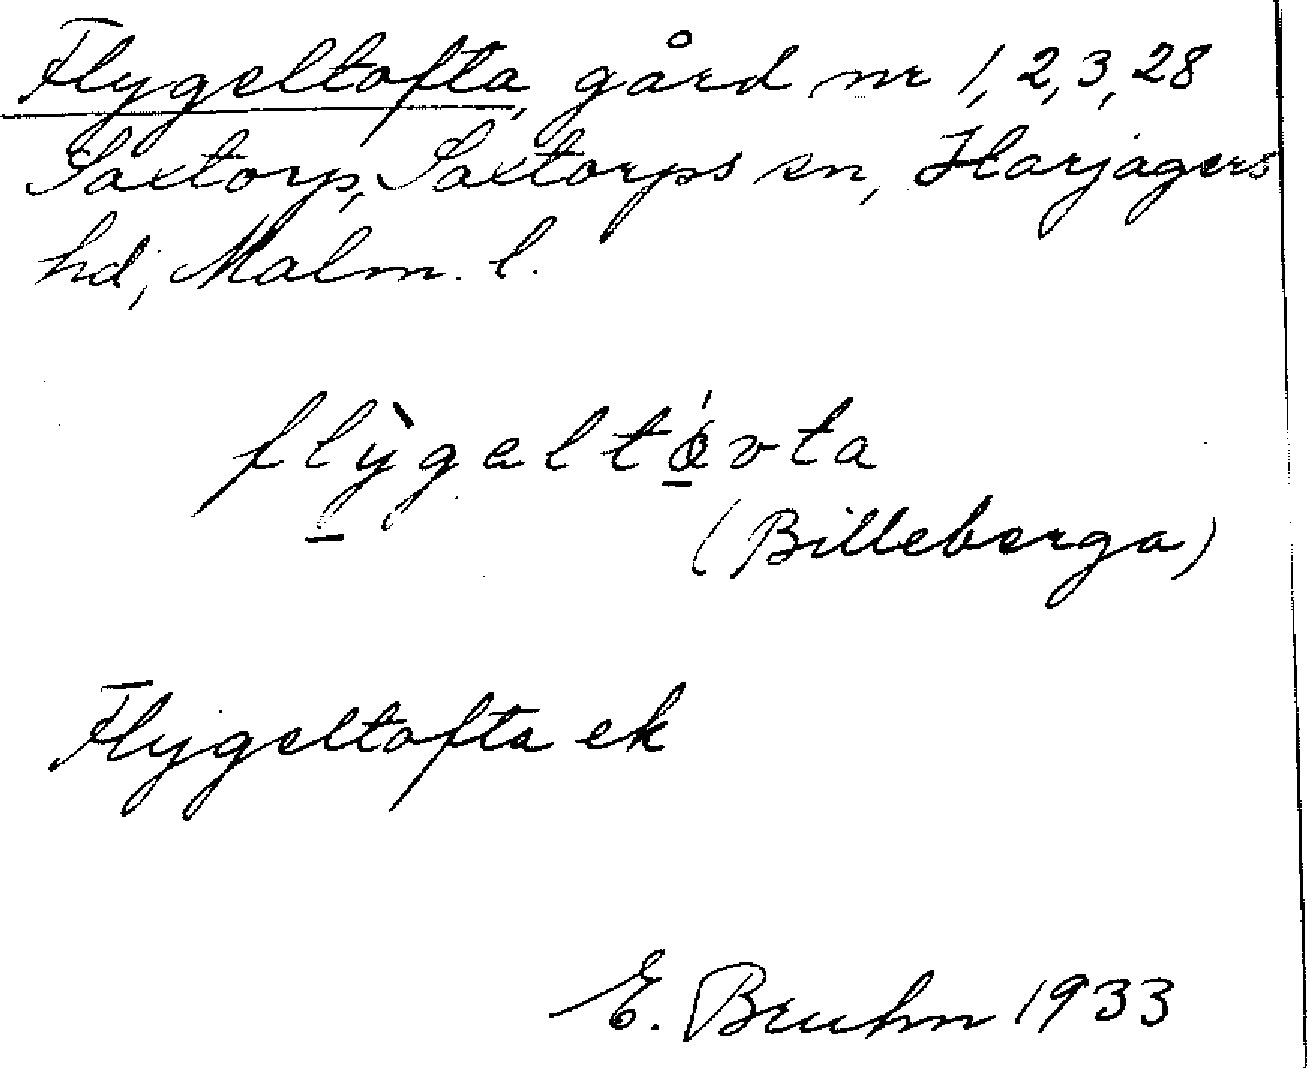 Flygeltofta, gård nr 1, 2, 3, 28
Saxtorp, Saxtorps sn, Harjagers
hd, Malm. l.
flỳgeltǿvta
(Billeberga)
Flygeltofta ek
E. Bruhn 1933